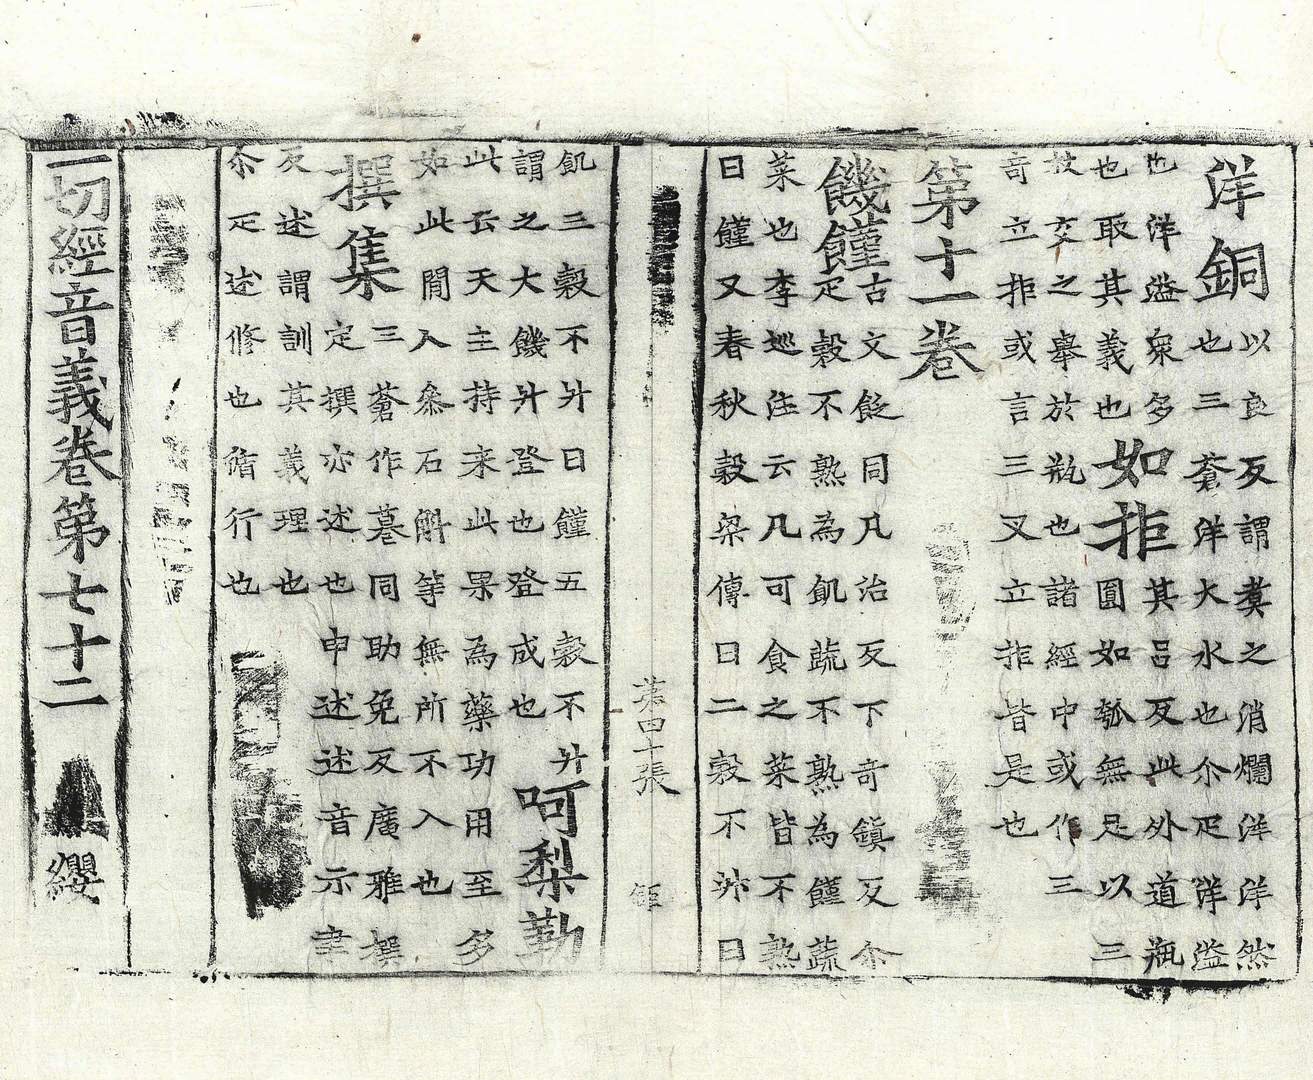 洋銅
以良反謂煑之消爛洋洋然
也三蒼洋大水也尒疋洋溢
也洋溢衆多
也取其義也
如拒
其呂反此外道瓶
圓如瓠無足以三
杖交之舉於瓶也諸經中或作三
奇立拒或言三叉立拒皆是也
第十一卷
饑饉
古文同几治反下奇鎮反尒
疋穀不熟為飢蔬不熟為饉蔬
菜也李巡注云凡可食之菜皆不熟
曰饉又春秋穀梁傳曰二穀不升曰
第四十張
飢三穀不升曰饉五穀不升
謂之大饑升登也登成也
呵梨勒
此云天主持来此果為藥功用至多
如此間人叅石斛等無所不入也
撰集
三蒼作同助免反廣雅撰
定撰亦述也申述述音示聿
反述謂訓其義理也
尒疋述修也循行也
一切經音義卷第七十二 纓